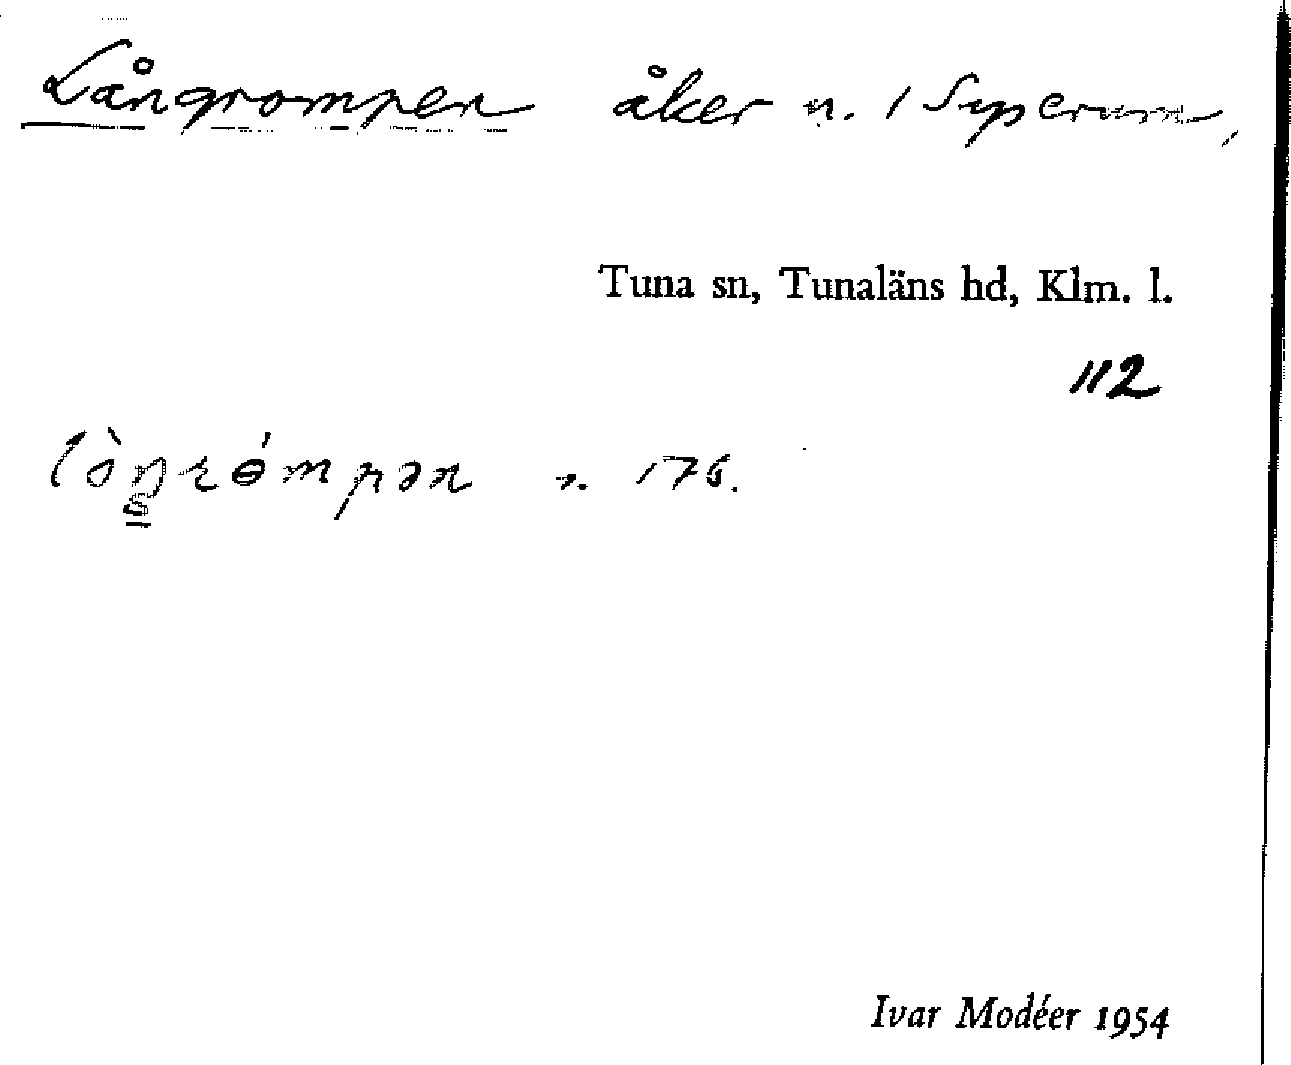 Långrompen åker n. 1 Syperum,
Tuna sn, Tunaläns hd, Klm. l.
112
lòŋrɵ́mpən n. 176.
Ivar Modéer 1954